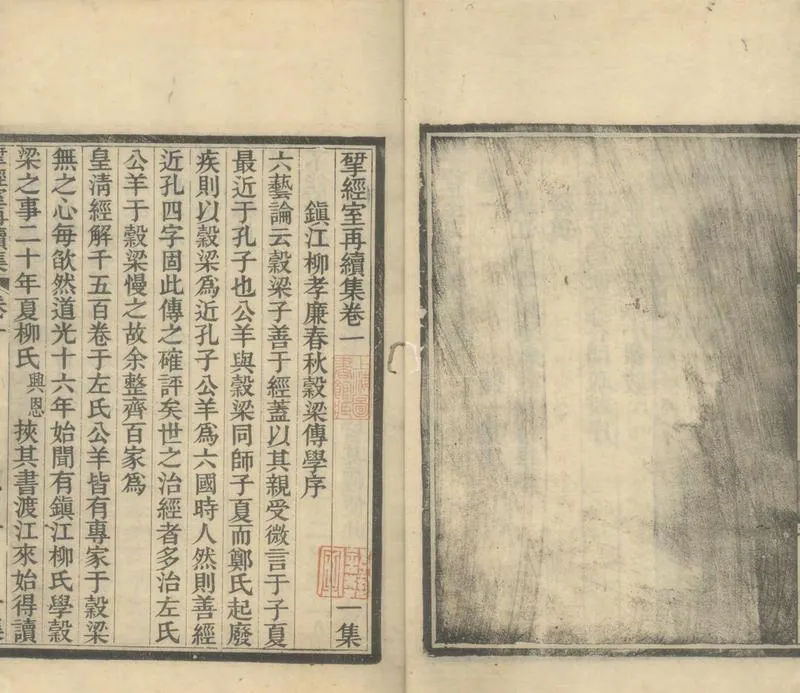 揅經室再續集卷一　一集
鎮江柳孝廉春秋穀梁傳學序
六藝論云穀梁子善于經蓋以其親受微言于子夏
最近于孔子也公羊與穀梁同師子夏而鄭氏起廢
疾則以穀梁爲近孔子公羊爲六國時人然則善經
近孔四字固此傳之確評矣世之治經者多治左氏
公羊于穀梁慢之故余整齊百家爲
皇清經解千五百卷于左氏公羊皆有專家于穀梁
無之心每欿然道光十六年始聞有鎮江柳氏學穀
梁之事二十年夏柳氏興恩挾其書渡江來始得讀